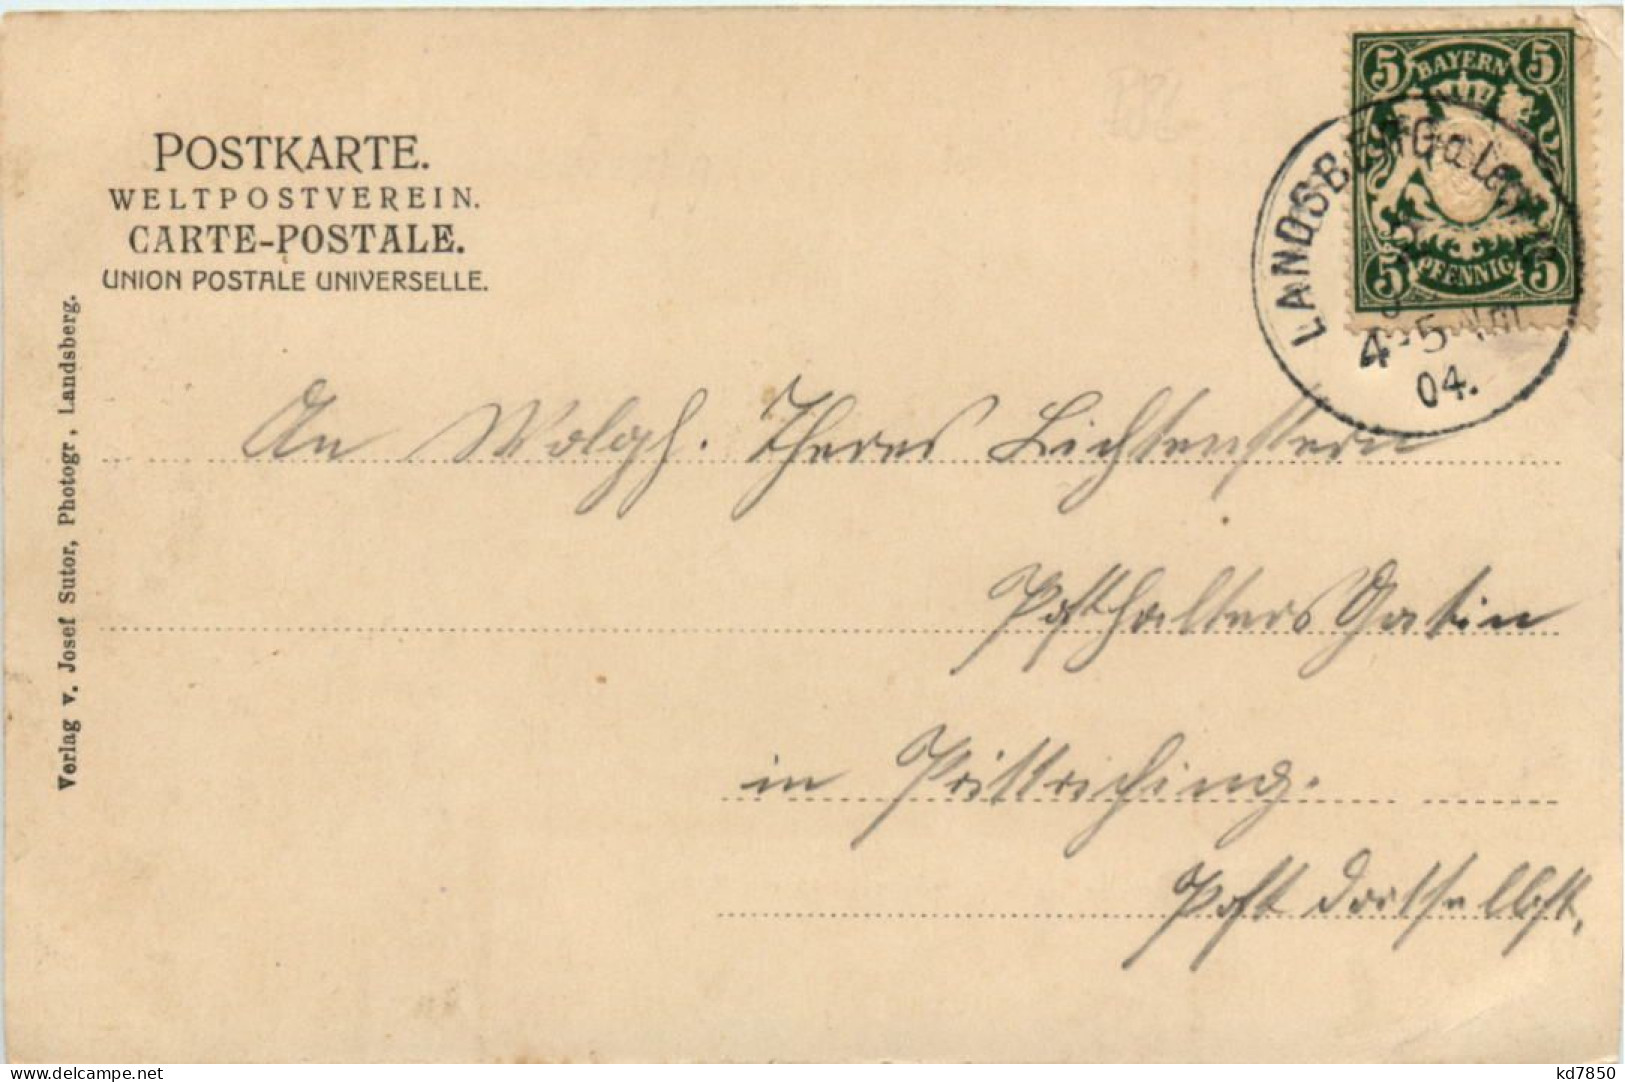 POSTKARTE.
WELTPOSTVEREIN.
CARTE-POSTALE.
UNION POSTALE UNIVERSELLE.
Verlag v. Josef Sutor, Photogr, Landsberg.
5 BAYERN 5
5 PFENNIG 5
LANDSBERG a. Lech
4-5 Nm
04.
An Wolgb. Theres Lichtenstern
Posthalters Gatin
in Prittriching.
Post dortselbst,
kd7850